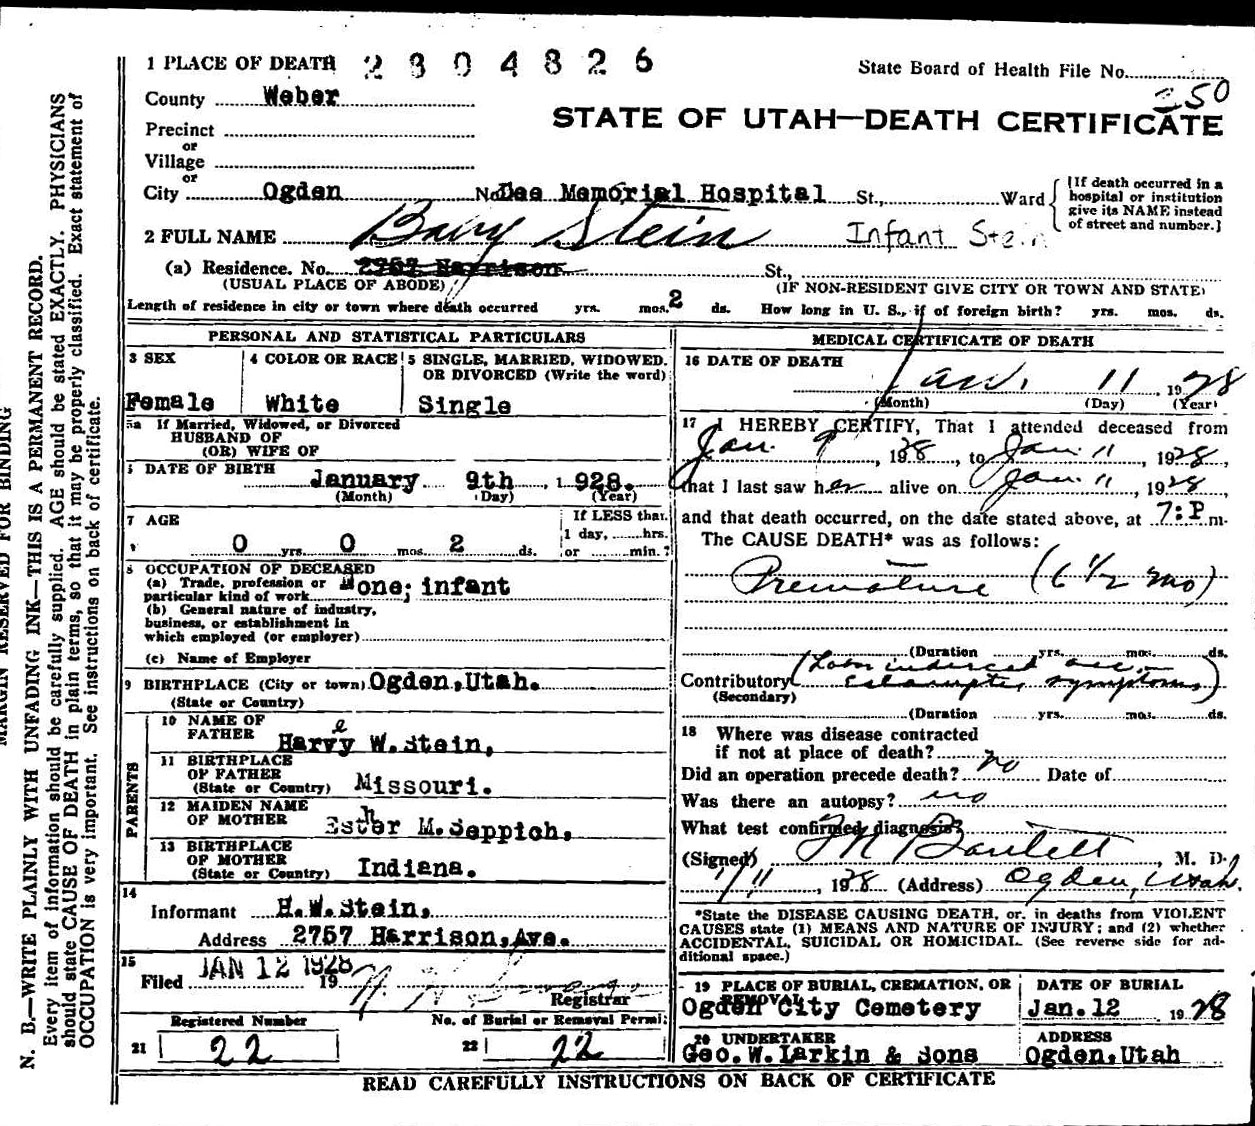 1 PLACE OF DEATH 2304826
State Board of Health File No.
250
County Weber
STATE OF UTAH—DEATH CERTIFICATE
Precinct
or
Village
or
City Ogden No. Dee Memorial Hospital St., Ward
[If death occurred in a
hospital or institution
give its NAME instead
of street and number.]
2 FULL NAME Baby Stein Infant Stein
(a) Residence. No. 2757 Harrison St.,
(USUAL PLACE OF ABODE) (IF NON-RESIDENT GIVE CITY OR TOWN AND STATE)
Length of residence in city or town where death occurred yrs. mos. 2 ds. How long in U. S., if of foreign birth? yrs. mos. ds.
PERSONAL AND STATISTICAL PARTICULARS
3 SEX
Female
4 COLOR OR RACE
White
5 SINGLE, MARRIED, WIDOWED,
OR DIVORCED (Write the word)
Single
5a If Married, Widowed, or Divorced
HUSBAND OF
(OR) WIFE OF
6 DATE OF BIRTH
January 9th, 1928.
(Month) (Day) (Year)
7 AGE
0 yrs. 0 mos. 2 ds.
If LESS than
1 day, hrs.
or min.?
8 OCCUPATION OF DECEASED
(a) Trade, profession or
particular kind of work None; infant
(b) General nature of industry,
business, or establishment in
which employed (or employer)
(c) Name of Employer
9 BIRTHPLACE (City or town) Ogden, Utah.
(State or Country)
PARENTS
10 NAME OF
FATHER Harvey W. Stein,
11 BIRTHPLACE
OF FATHER
(State or Country) Missouri.
12 MAIDEN NAME
OF MOTHER Esther M. Seppich,
13 BIRTHPLACE
OF MOTHER
(State or Country) Indiana.
14
Informant H.W.Stein,
Address 2757 Harrison, Ave.
15
JAN 12 1928
Filed 19
Registrar
Registered Number
21 22
No. of Burial or Removal Permit
22 22
MEDICAL CERTIFICATE OF DEATH
16 DATE OF DEATH
Jan. 11, 1928
(Month) (Day) (Year)
17 I HEREBY CERTIFY, That I attended deceased from
Jan. 9, 1928, to Jan. 11, 1928,
that I last saw her alive on Jan. 11, 1928,
and that death occurred, on the date stated above, at 7:P m.
The CAUSE DEATH* was as follows:
Premature (6 1/2 mo)
(Duration yrs. mos. ds.
Contributory (Labor induced acc.
(Secondary) eclamptic symptoms)
(Duration yrs. mos. ds.
18 Where was disease contracted
if not at place of death?
Did an operation precede death? no Date of
Was there an autopsy? no
What test confirmed diagnosis?
(Signed) Bartlett, M. D.
1/11, 1928 (Address) Ogden, Utah.
*State the DISEASE CAUSING DEATH, or, in deaths from VIOLENT
CAUSES state (1) MEANS AND NATURE OF INJURY; and (2) whether
ACCIDENTAL, SUICIDAL OR HOMICIDAL. (See reverse side for ad-
ditional space.)
19 PLACE OF BURIAL, CREMATION, OR
REMOVAL
Ogden City Cemetery
DATE OF BURIAL
Jan. 12 1928
20 UNDERTAKER
Geo. W. Larkin & Sons
ADDRESS
Ogden, Utah
READ CAREFULLY INSTRUCTIONS ON BACK OF CERTIFICATE
MARGIN RESERVED FOR BINDING
N. B.—WRITE PLAINLY WITH UNFADING INK—THIS IS A PERMANENT RECORD.
Every item of information should be carefully supplied. AGE should be stated EXACTLY. PHYSICIANS
should state CAUSE OF DEATH in plain terms, so that it may be properly classified. Exact statement of
OCCUPATION is very important. See instructions on back of certificate.